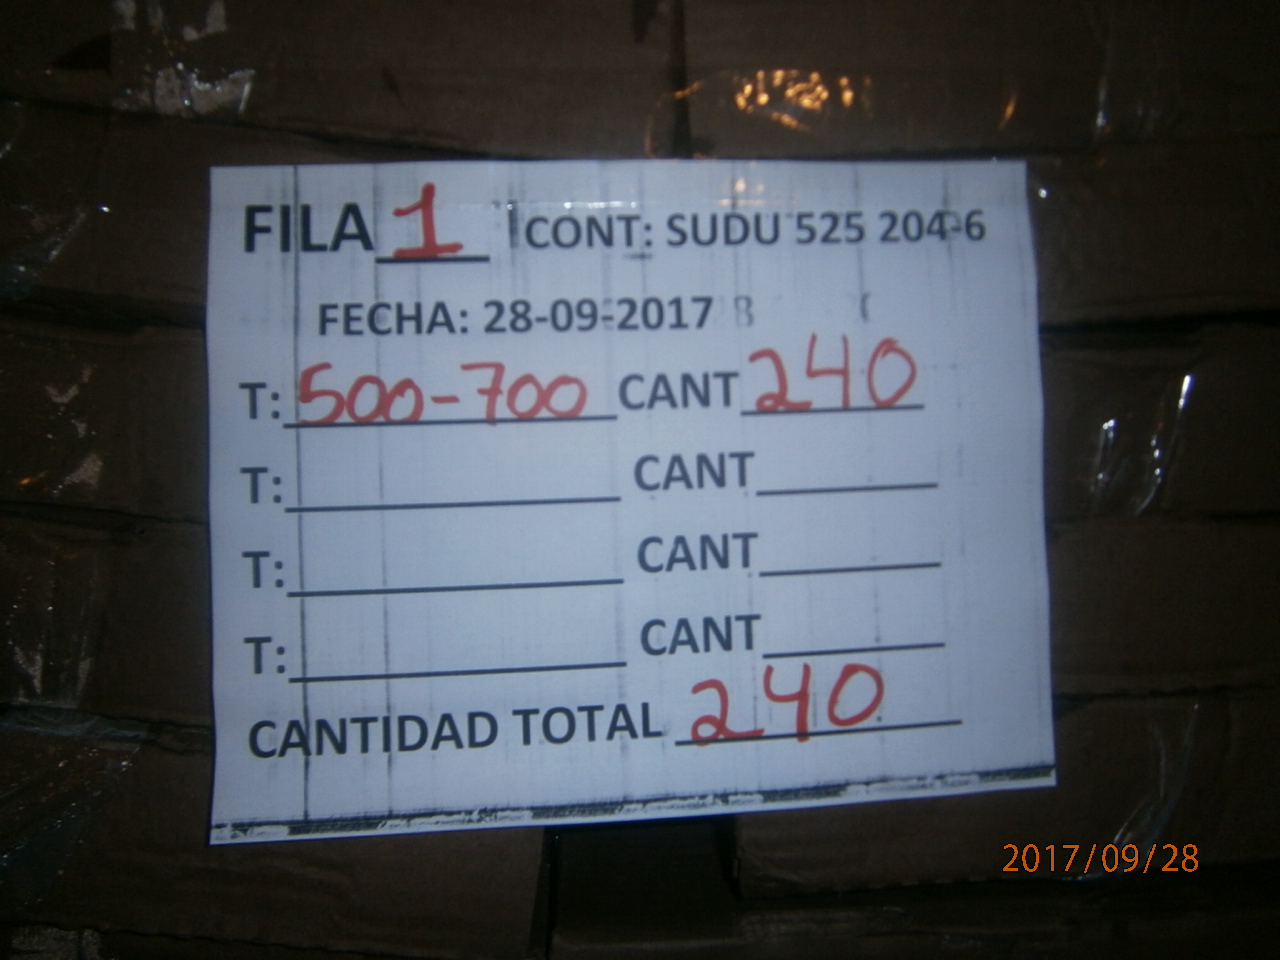 FILA 1 CONT: SUDU 525 204-6
FECHA: 28-09-2017
T: 500-700 CANT 240
T: CANT
T: CANT
T: CANT
CANTIDAD TOTAL 240
2017/09/28